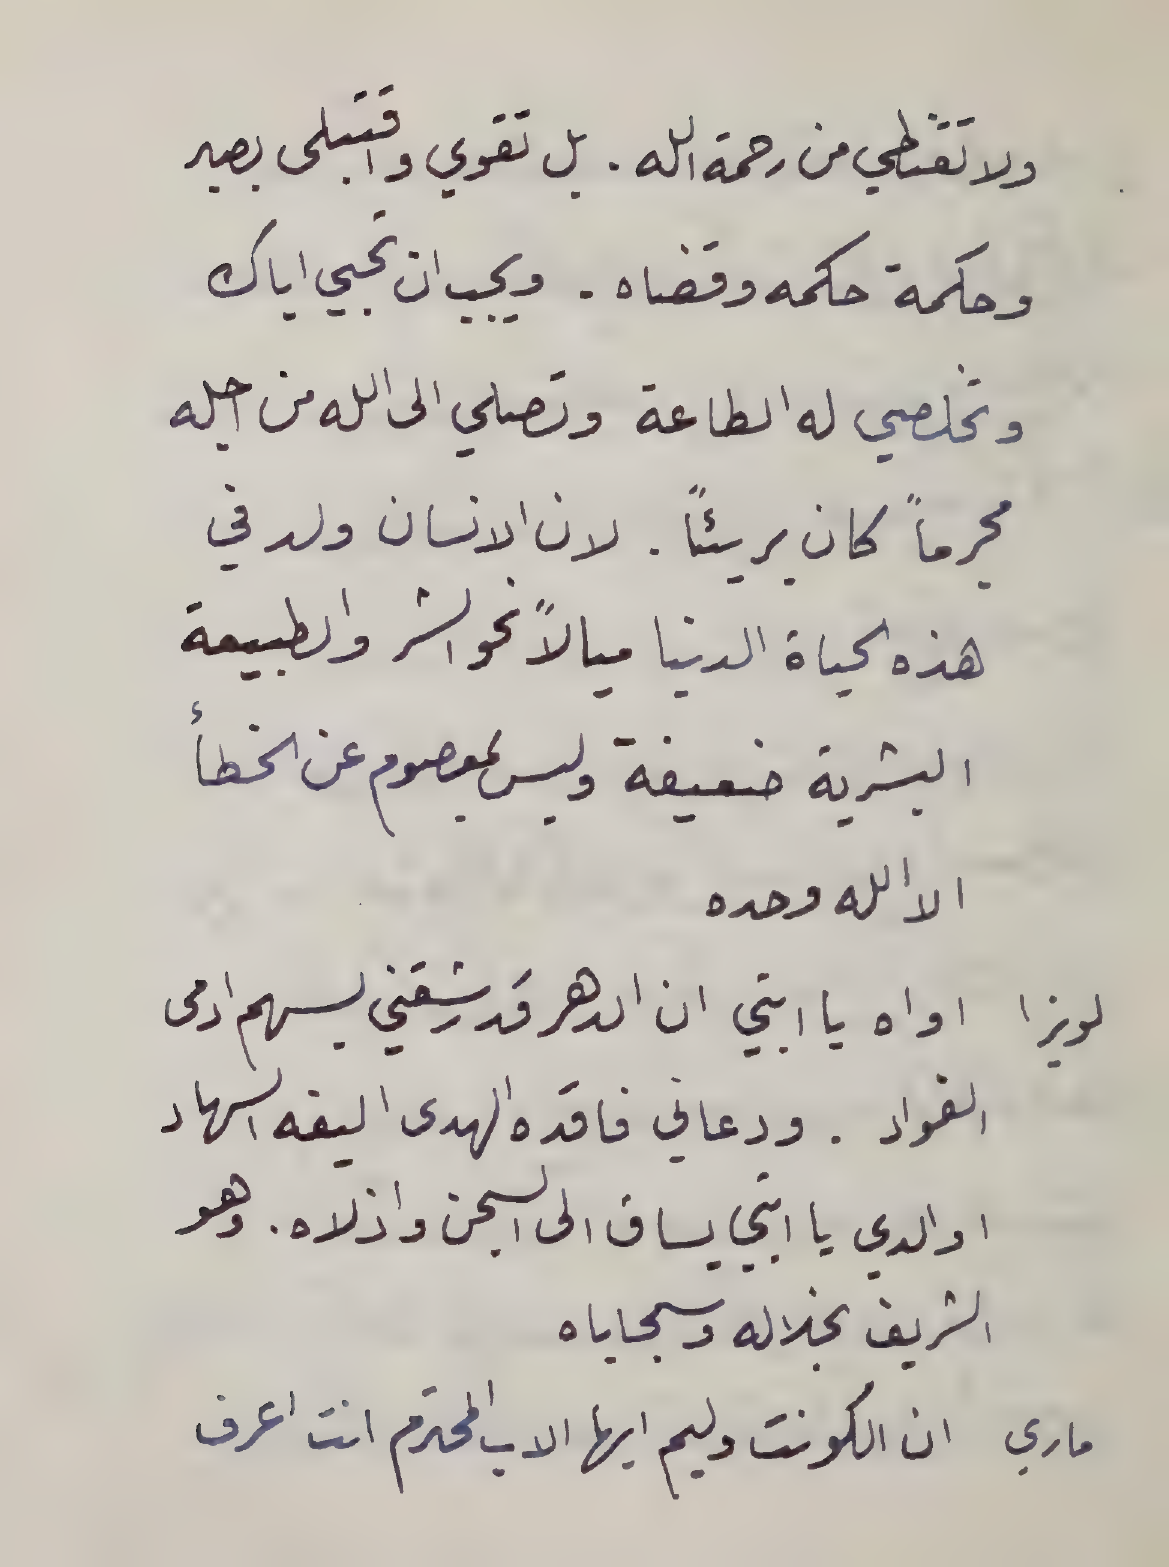 ولا تقنطي من رحمة الله . بل تقوي واقتبلى بصبر
وحكمة حكمه وقضاه . ويجب ان تحبي اباك
وتخلصي له الطاعة وتصلي الى الله من اجله
مجرماً كان بريئاً . لان الانسان ولد في
هذه الحياة الدنيا ميالاً نحو الشر والطبيعة
البشرية ضعيفة وليس بمعصوم عن الخطأ
الا الله وحده
لويزا اواه يا ابتي ان الدهر قد رشقني بسهم ادمى
الفواد . ودعاني فاقده الهدى اليفه السهاد
اوالدي يا ابتي يساق الى السجن واذلاه . وهو
الشريف بخلاله وسجاياه
ماري ان الكونت وليم ايها الاب المحترم انت اعرف